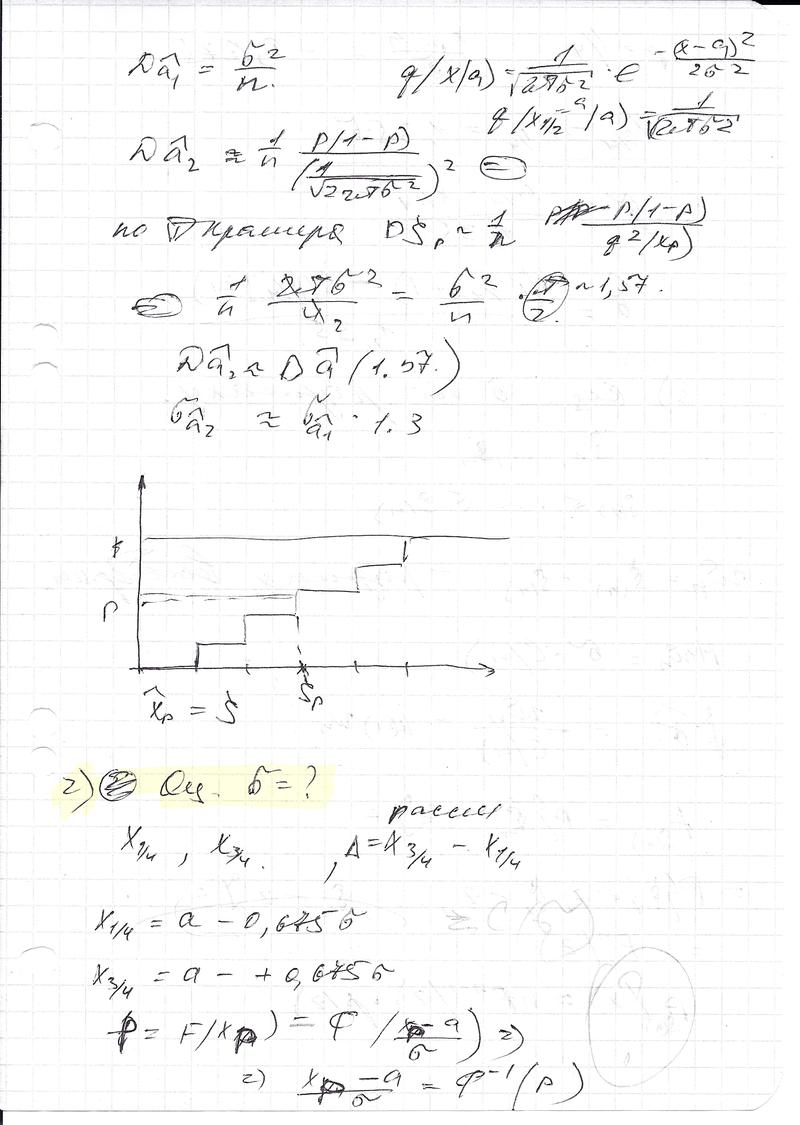 Dâ₁ = σ²/n.
q(x|a) = 1/√(2πσ²) · e^(-(x-a)²/2σ²)
q(x₁/₂ = a|a) = 1/√(2πσ²)
Dâ₂ ≈ 1/n p(1-p)/(1/√(2πσ²))² =
по Т Крамера Dξₚ ~ 1/n p(1-p)/q²(xₚ)
= 1/n 2πσ²/4 2 = σ²/n · π/2 ~ 1,57.
Dâ₂ ≈ Dâ (1.57.)
σâ₂ ≈ σâ₁ · 1.3
1
p
ξₚ
x̂ₚ = ξ
2) Оц. σ = ?
рассм
x₁/₄ , x₃/₄ . , Δ = x₃/₄ - x₁/₄
x₁/₄ = a - 0,675σ
x₃/₄ = a - + 0,675σ
p = F(xₚ) = Φ((xₚ - a)/σ) =>
=> (xₚ - a)/σ = Φ⁻¹(p)